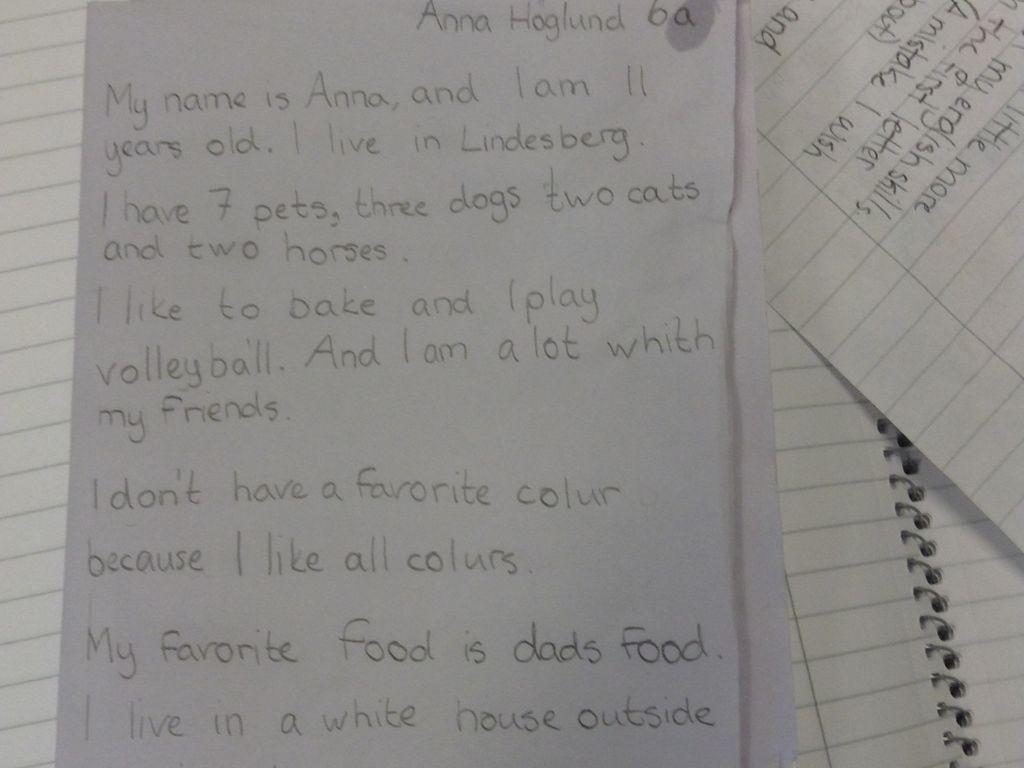 Anna Hoglund 6a
My name is Anna, and I am 11
years old. I live in Lindesberg.
I have 7 pets, three dogs two cats
and two horses.
I like to bake and I play
volleyball. And I am a lot whith
my friends.
I don't have a favorite colur
because I like all colurs.
My favorite food is dads food.
I live in a white house outside
little more
my english skills,
the first letter
(A mistake I wish
and